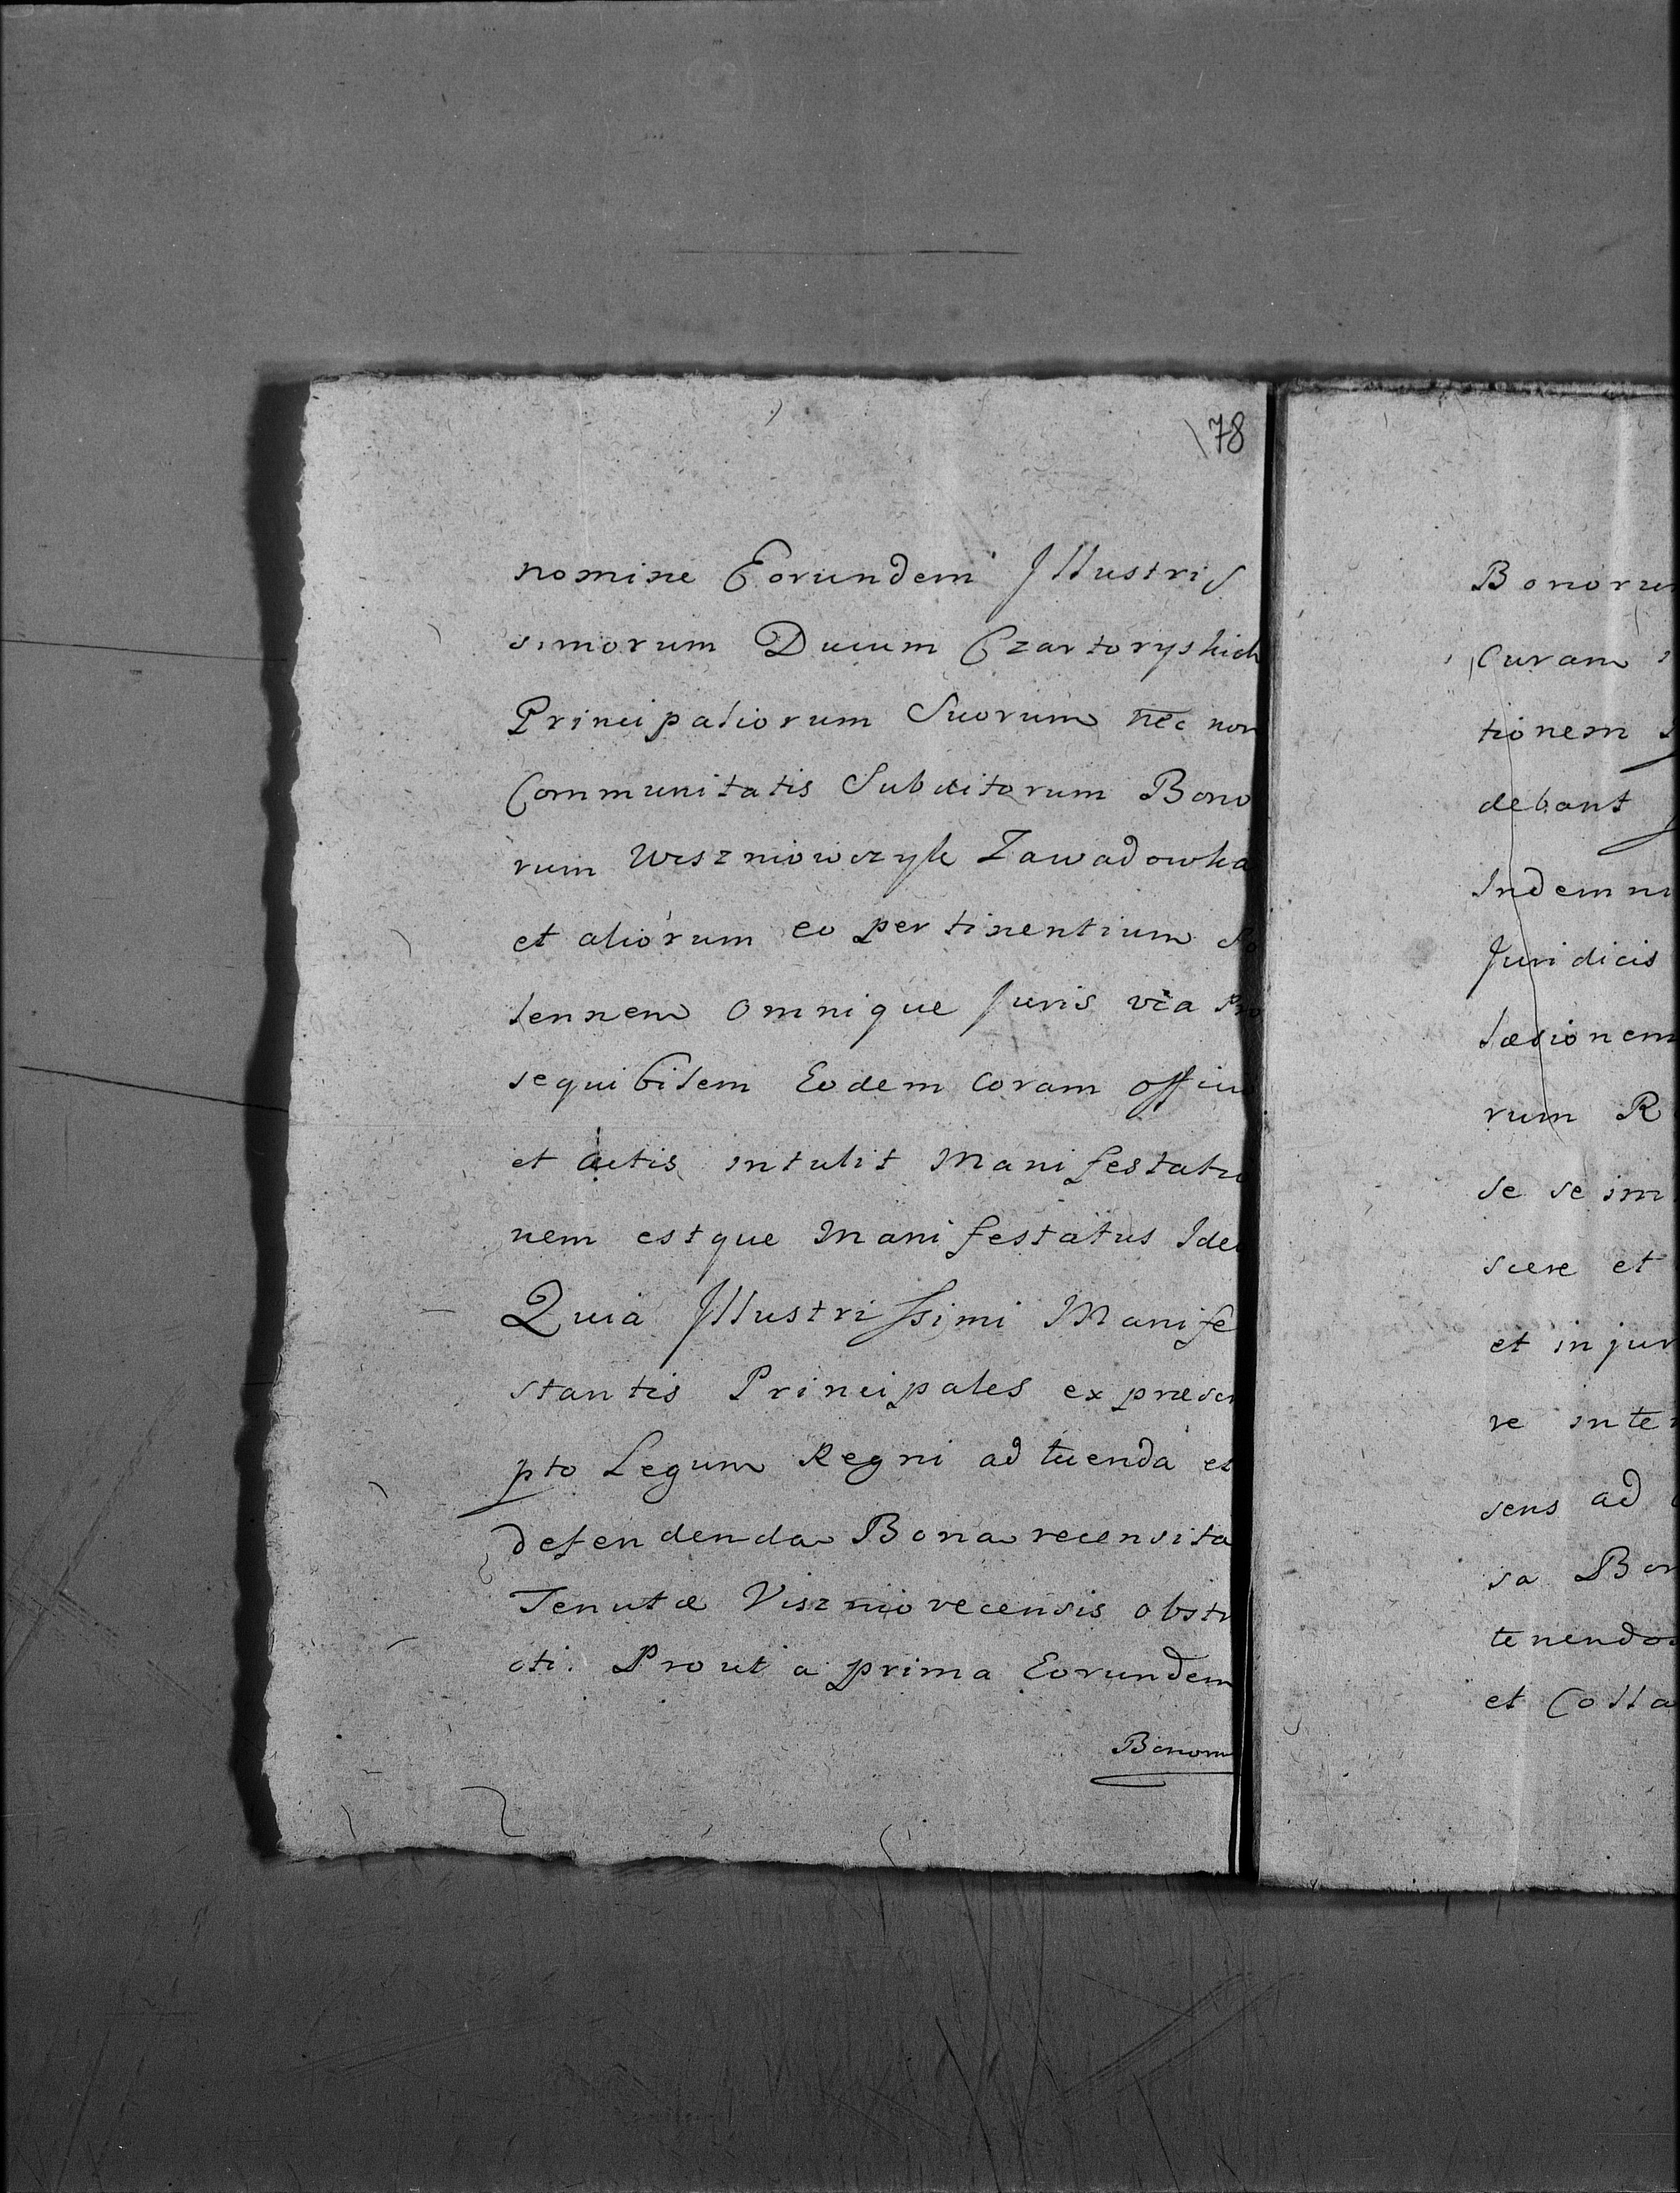 78
nomine Eorundem Illustris
simorum Ducum Czartoryskich
Principaliorum Suorum nec non
Communitatis Subditorum Bono
rum Wiszniowczyk Zawadowka
et aliorum eo pertinentium So
lennem omnique Juris via Pro
sequibilem Eodem coram officio
et actis intulit Manifestatio
nem estque Manifestatus Ideo
Quia Illustrissimi Manife
stantis Principales ex præscri
pto Legum Regni ad tuenda et
defendenda Bona recensita
Tenutæ Viszniovecensis obstri
cti. Prout a prima Eorundem
Bonorum
Bonorum
Curam
tionem
debant
Indemni
Juridicis
læsionem
rum R
se se im
scere et
et injur
re inter
sens ad
sa Bon
tenendo
et Colla